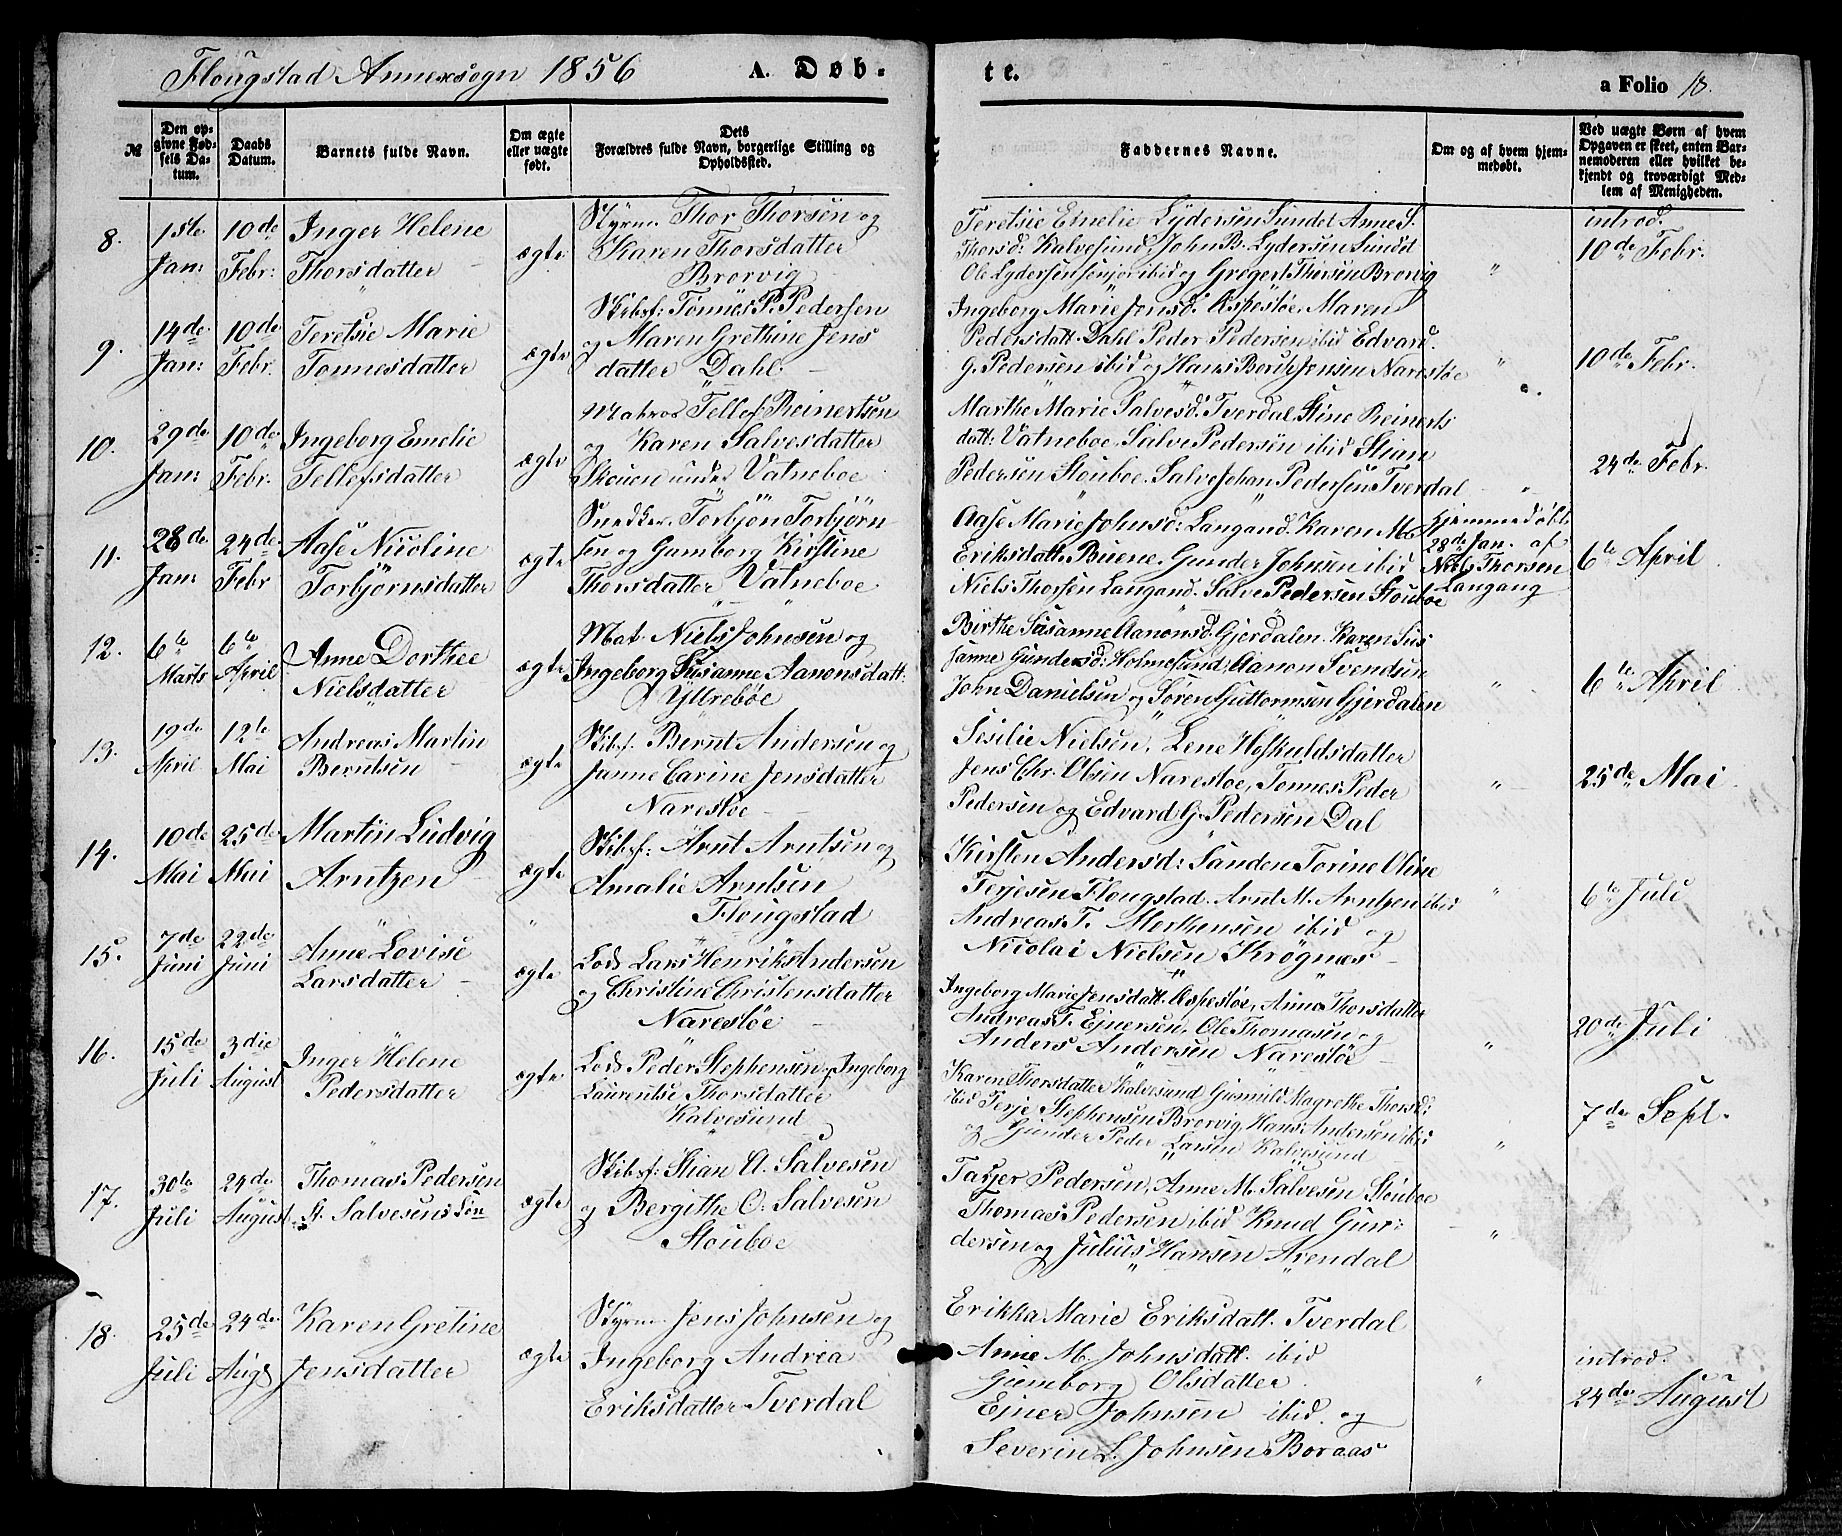 Flougstad Annexsogn 1856 A. Døb- te. a Folio 18.
№ Den opgivne Fødsels Datum. Daabs Datum. Barnets fulde Navn. Om ægte eller uægte født. Dets Forældres fulde Navn, borgerlige Stilling og Opholdsted. Faddernes Navne. Om og af hvem hjemmedøbt. Ved uægte Børn af hvem Opgaven er skeet, enten Barnemoderen eller hvilket bekjendt og troværdigt Medlem af Menigheden.
8. 1ste Jan: 10de Febr: Inger Helene
Thorsdatter
ægte
Styrm. Thor Thorsen og
Karen Thorsdatter
Brørvig
Teretsie Emelie Lydersen Sundet Anne S.
Thorsd. Kalvesund, John B. Lydersen Sundet
Ole Lydersen senjor ibid og Grøgert Thorsen Brørvig
"
introd.
10de Febr.
9. 14de Jan: 10de Febr. Teretsie Marie
Tønnesdatter
ægte
Skibsf: Tønnes P. Pedersen
og Maren Grethine Jens
datter Dahl.
Ingeborg Marie Jensd. Aspestøe. Maren
Pedersdatt. Dahl Peder Pedersen ibid Edvard.
G. Pedersen ibid og Hans Berth Jensen Narestøe
"
10de Febr.
10. 29de Jan: 10de Febr. Ingeborg Emelie
Tellefsdatter
ægte
Matros Tellef Reinertsen
og Karen Salvesdatter
Skouen under Vatneboe
Marthe Marie Salvesd. Tverdal, Stine Reinerts
datt: Vatneboe. Salve Pedersen ibid Stian
Pedersen Stouboe. Salve Johan Pedersen Tverdal
"
24de Febr.
11. 28de Jan: 24de Febr Aase Nicoline
Torbjørnsdatter
ægte
Snedker. Torbjøn Torbjørn-
sen og Gumborg Kirstine
Thorsdatter Vatneboe
Aase Marie Johnsd: Langand. Karen M.
Eriksdatt. Buene. Gunder Johnsen ibid
Niels Thorsen Langand. Salve Pedersen Stouboe
Hjemmedøbt
28de Jan. af
Niels Thorsen
Langang
6te April
12. 6te Marts 6te April Anne Dorthee
Nielsdatter
ægte
Mat. Niels Johnsen og
Ingeborg Susanne Aanonsdatt.
Yttrebøe
Birthe Susanne Aanonsd. Gjerdalen. Karen Sus
sanne Gundersd: Holmesund, Aanon Svendsen
John Danielsen og Søren Guttormsen Gjerdalen
"
6te April
13. 19de April 12te Mai Andreas Martin
Berntsen
ægte
Skibsf. Bernt Andersen og
Janne Carine Jensdatter
Narestøe
Sesilie Nielsen, Lene Hofkuldsdatter
Jens Chr. Olsen Narestøe, Tønnes Peder
Pedersen og Edvard G. Pedersen Dal
"
25de Mai
14. 10de Mai 25de Mai Martin Ludvig
Arntzen
ægte
Skibsf: Arnt Arntsen og
Amalie Arntsen
Flougstad
Kirsten Andersd: Sanden Torine Oline
Terjesen Flougstad. Arnt M. Arntzen ibid
Andreas T. Morkensen ibid og
Nicolai Nielsen Krøgnæs
"
6te Juli
15. 7de Juni 22de Juni Anne Lovise
Larsdatter
ægte
Lods Lars Henrik Andersen
og Christine Christensdatter
Narestøe
Ingeborg Marie Jensdatt. Aspestøe, Anna Thorsdatter
Andreas T. Ejnersen. Ole Thomasen og
Anders Andersen Narestøe
"
20de Juli
16. 15de Juli 3die August Inger Helene
Pedersdatter
ægte
Lods Peder Stephensen og Ingeborg
Laurentse Thorsdatter
Kalvesund
Karen Thorsdatter Kalvesund Gunnild Magrethe Thorsd:
ibid Terje Stephensen Brørvig, Hans Andersen ibid
og Gunder Peder Larsen Kalvesund
"
7de Sept.
17. 30te Juli 24de August Thomas Pedersen
St. Salvesens Søn
ægte
Skibsf: Stian A. Salvesen
og Bergithe O. Salvesen
Stouboe
Tatjer Pedersen, Anne M. Salvesen, Stouboe
Thomas Pedersen ibid Knud Gun-
dersen og Julius Hansen Arendal
"
18. 25de Juli 24de Aug: Karen Gretine
Jensdatter
ægte
Styrm. Jens Johnsen og
Ingeborg Andrea
Eriksdatter Tverdal
Erikka Marie Eriksdatt. Tverdal
Anne M. Johnsdatt. ibid
Gumborg Olsdatter.
Ejner Johnsen ibid. og
Severin L. Johnsen Boraas
"
introd.
24de August